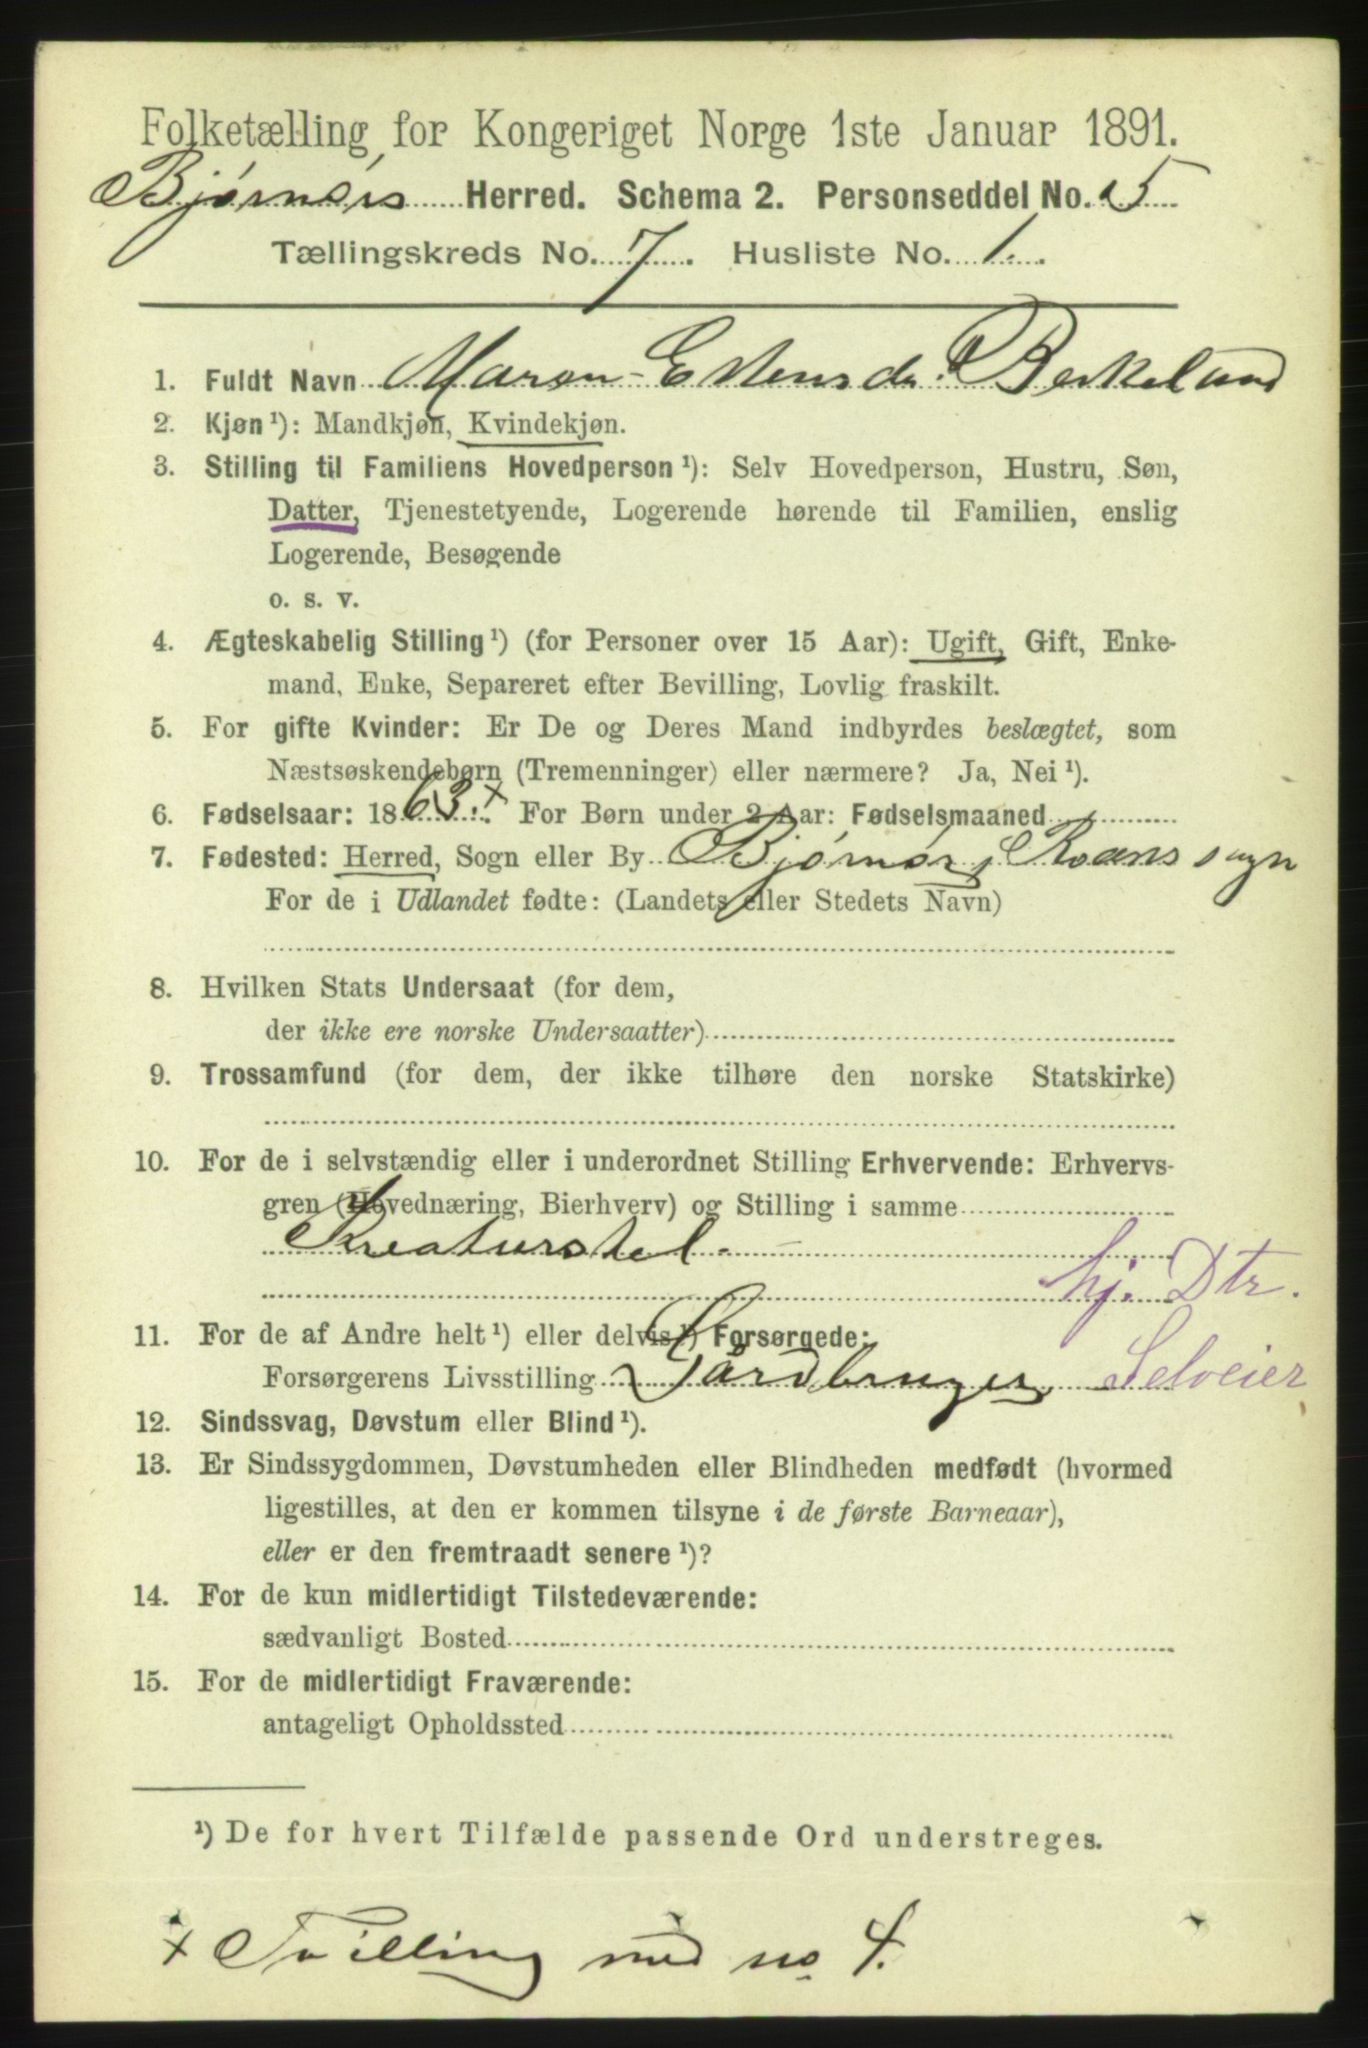 Folketælling for Kongeriget Norge 1ste Januar 1891.
Bjørnørs Herred. Schema 2. Personseddel No. 5
Tællingskreds No. 7. Husliste No. 1.
1. Fuldt Navn Maren Estensdr. Berkeland
2. Kjøn ¹): Mandkjøn, Kvindekjøn.
3. Stilling til Familiens Hovedperson ¹): Selv Hovedperson, Hustru, Søn,
Datter, Tjenestetyende, Logerende hørende til Familien, enslig
Logerende, Besøgende
o. s. v.
4. Ægteskabelig Stilling ¹) (for Personer over 15 Aar): Ugift, Gift, Enke-
mand, Enke, Separeret efter Bevilling, Lovlig fraskilt.
5. For gifte Kvinder: Er De og Deres Mand indbyrdes beslægtet, som
Næstsøskendebørn (Tremenninger) eller nærmere? Ja, Nei ¹).
6. Fødselsaar: 1863. x For Børn under 2 Aar: Fødselsmaaned
7. Fødested: Herred, Sogn eller By Bjørnør, Roans sogn
For de i Udlandet fødte: (Landets eller Stedets Navn)
8. Hvilken Stats Undersaat (for dem,
der ikke ere norske Undersaatter)
9. Trossamfund (for dem, der ikke tilhøre den norske Statskirke)
10. For de i selvstændig eller i underordnet Stilling Erhvervende: Erhvervs-
gren (Hovednæring, Bierhverv) og Stilling i samme
Kreaturstel.
hj. Dtr.
11. For de af Andre helt ¹) eller delvis ¹) Forsørgede:
Forsørgerens Livsstilling Gårdbruger, Selveier
12. Sindssvag, Døvstum eller Blind ¹).
13. Er Sindssygdommen, Døvstumheden eller Blindheden medfødt (hvormed
ligestilles, at den er kommen tilsyne i de første Barneaar),
eller er den fremtraadt senere ¹)?
14. For de kun midlertidigt Tilstedeværende:
sædvanligt Bosted
15. For de midlertidigt Fraværende:
antageligt Opholdssted
¹) De for hvert Tilfælde passende Ord understreges.
x Tvilling med no 4.